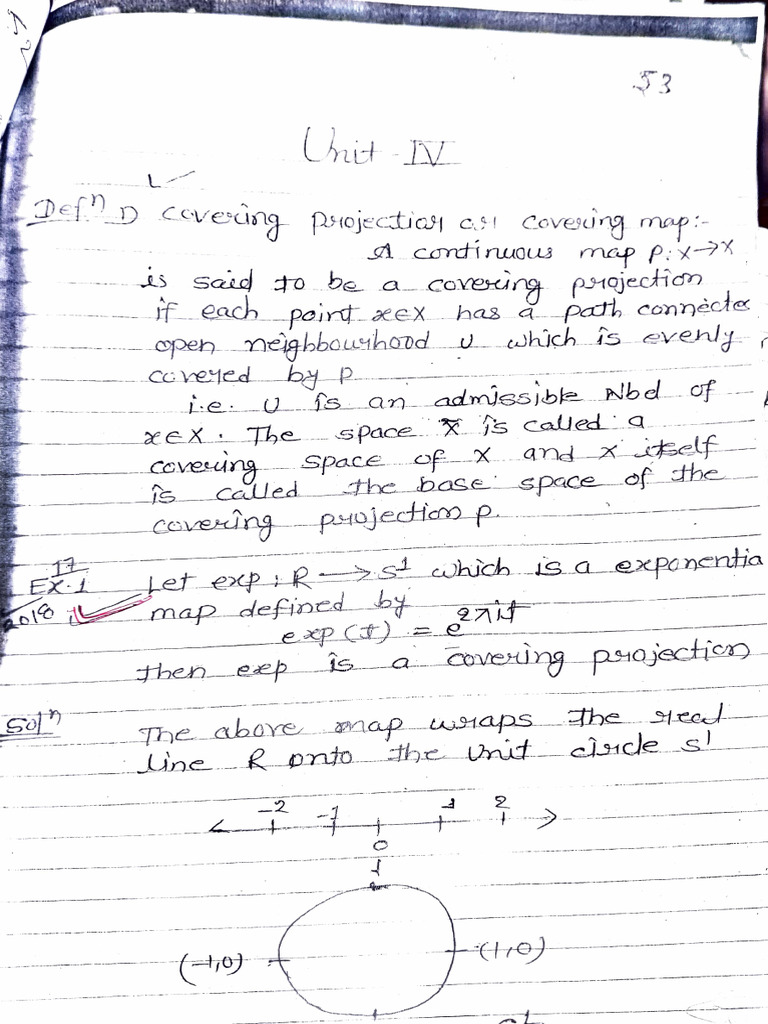 53
Unit - IV
Defⁿ 1) covering projection or covering map:-
A continuous map p: x̃→x
is said to be a covering projection
if each point x∈X has a path connecte
open neighbourhood U which is evenly
covered by p
i.e. U is an admissible Nbd of
x∈X. The space x̃ is called a
covering space of X and X itself
is called the base space of the
covering projection p.
17
Ex.1 Let exp: R → S¹ which is a exponentia
2018 map defined by
exp(t) = e^{2πit}
then exp is a covering projection
Solⁿ The above map wraps the real
line R onto the Unit circle S¹
-2 -1 1 2
0
(-1,0) (1,0)